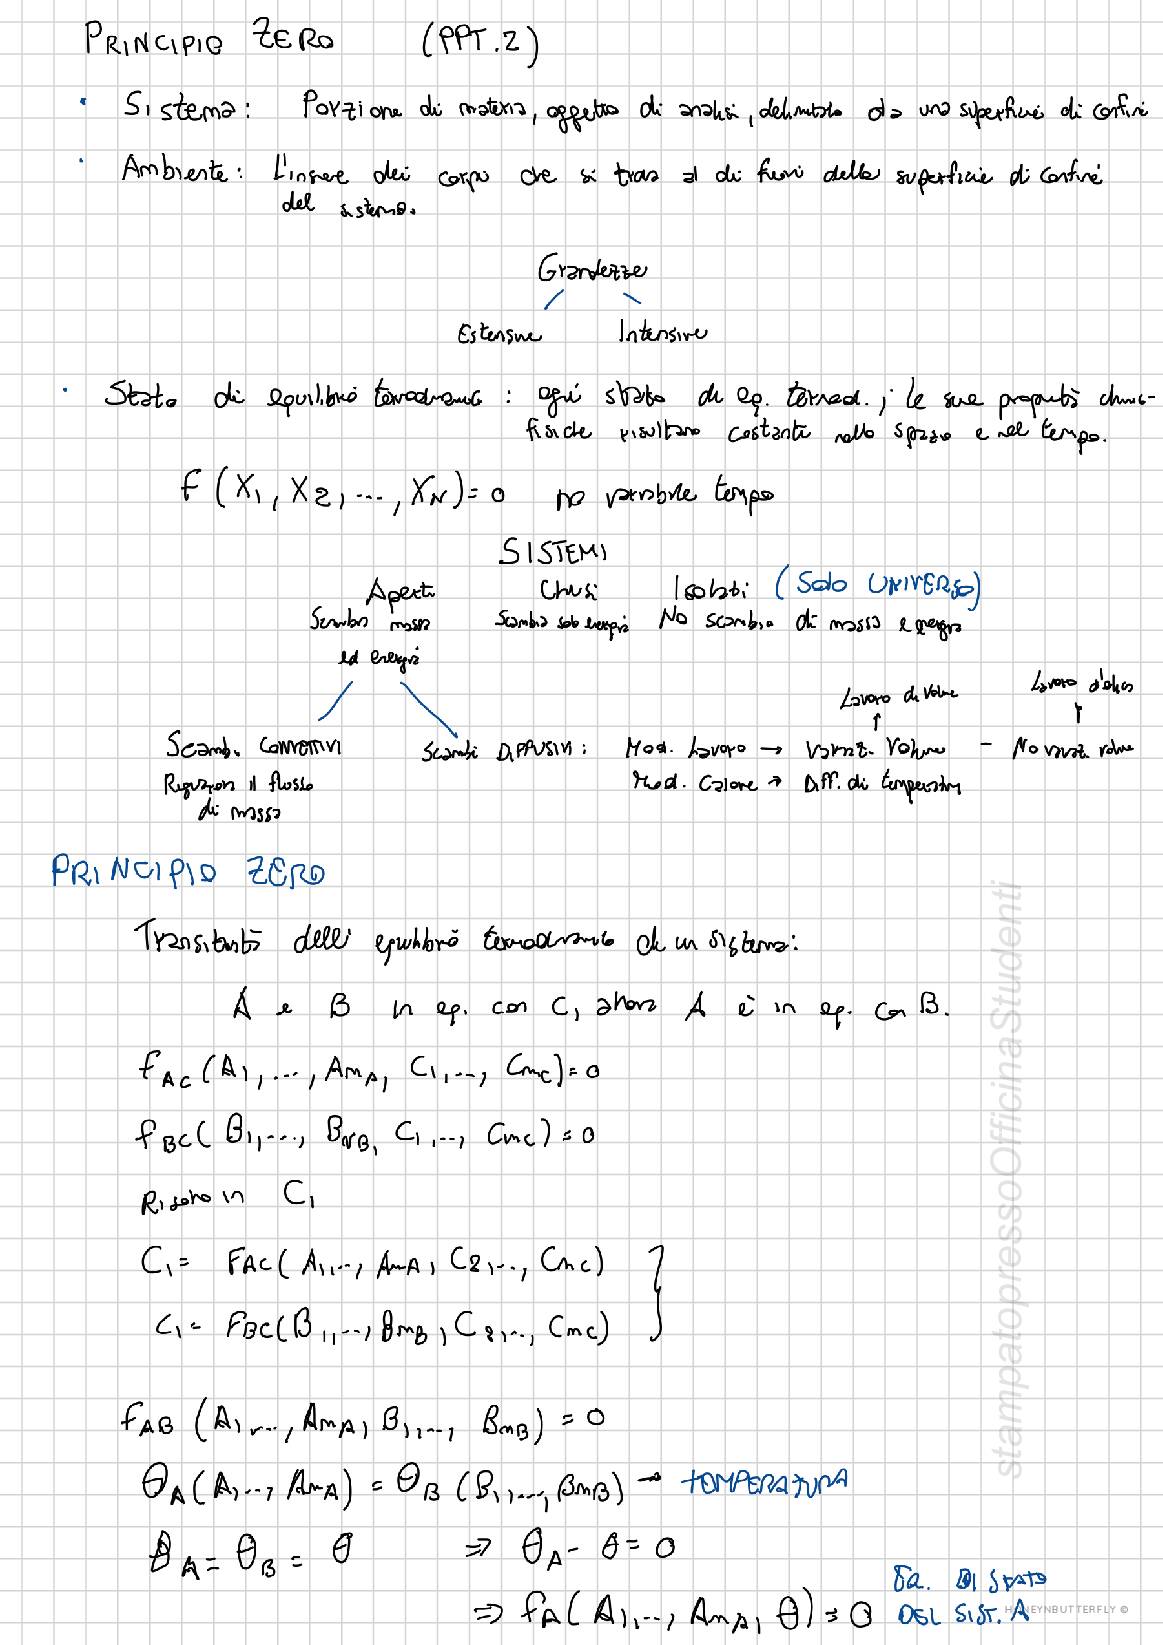 PRINCIPIO ZERO (PPT.2)
• Sistema: Porzione di materia, oggetto di analisi, delimitato da una superficie di confine
• Ambiente: L'insieme dei corpi che si trova al di fuori della superficie di confine
del sistema.
Grandezze
Estensive Intensive
• Stato di equilibrio termodinamico: ogni stato di eq. termod.; le sue proprietà chimico-
fisiche risultano costanti nello spazio e nel tempo.
f (X1, X2, ..., XN) = 0 no variabile tempo
SISTEMI
Aperti Chiusi Isolati (Solo UNIVERSO)
Scambio massa Scambia solo energia No scambio di massa e energia
ed energia
Lavoro di Volume Lavoro d'elica
Scamb. CONVETTIVI Scambi DIFFUSIVI: Mod. Lavoro → Variaz. Volume – No variaz. volume
Riguardano il flusso Mod. Calore → Diff. di temperatura
di massa
PRINCIPIO ZERO
Transitività delli equilibrio termodinamico di un sistema:
A e B in eq. con C, allora A è in eq. con B.
fAC (A1, ..., AmA, C1, ..., CmC) = 0
fBC (B1, ..., BNB, C1, ..., CmC) = 0
Risolvo in C1
C1 = FAC (A1, ..., AmA, C2, ..., CmC)
C1 = FBC (B1, ..., BmB, C2, ..., CmC)
fAB (A1, ..., AmA, B1, ..., BmB) = 0
θA (A1, ..., AmA) = θB (B1, ..., BmB) → TEMPERATURA
θA = θB = θ ⇒ θA - θ = 0
⇒ fA (A1, ..., AmA, θ) = 0 Eq. DI STATO
DEL SIST. A
HONEYNBUTTERFLY ©
stampatopressoOfficinaStudenti